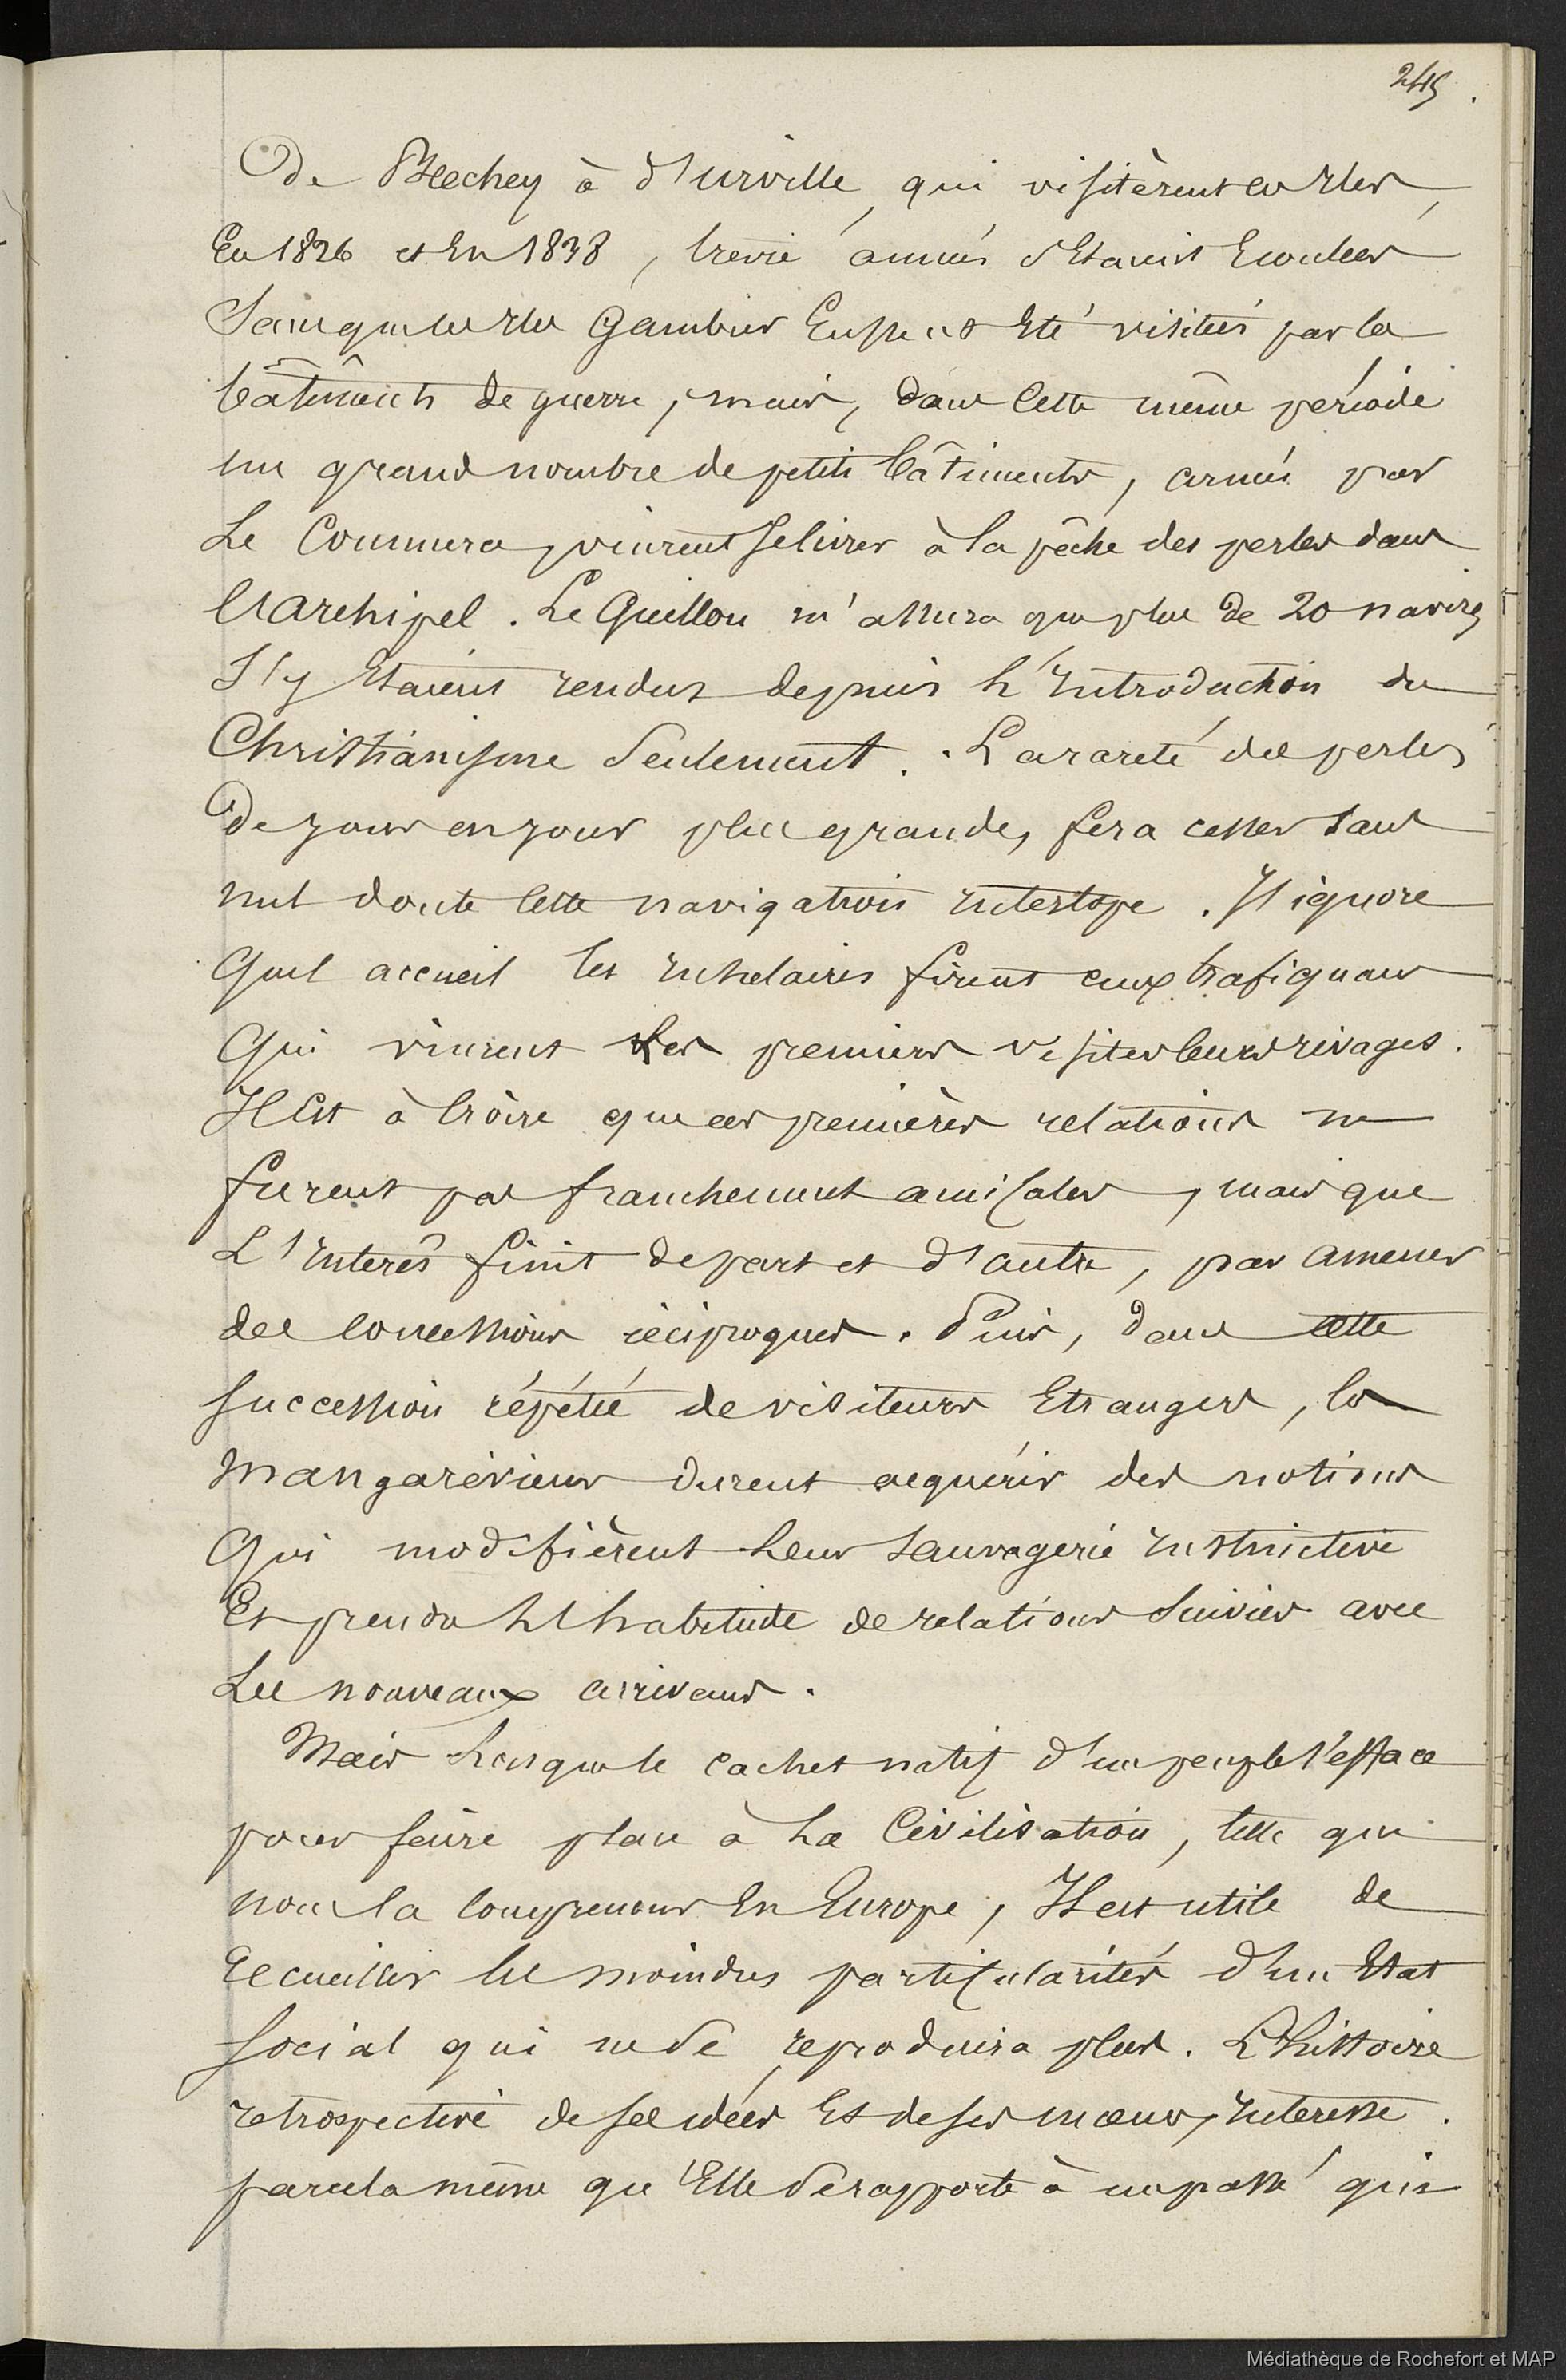 245.
De Beechey à d'urville, qui visitèrent ces Iles,
En 1826 et En 1838, treize années s'Etaient Ecoulées
Sans que les Iles Gambier Eussent Eté visitées par les
bâtiments de guerre, mais, dans Cette même période
un grand nombre de petits bâtiments, armés par
Le Commerce, vinrent se livrer à la pêche des perles dans
l'Archipel. Le Guillou m'assura que plus de 20 navires
S'y Etaient rendus depuis L'Introduction du
Christianisme Seulement. La rareté des perles
De jour en jour plus grande, fera cesser sans
nul doute Cette navigation Interlope. J'ignore
Quel accueil les Insulaires firent aux trafiquans
Qui vinrent Les premiers visiter leurs rivages.
Il Est à Croire que ces premières relations ne
furent pas franchement amicales, mais que
L'Interêt finit de part et d'autre, par amener
des Concessions réciproques. Puis, dans cette
succession répétée de visiteurs Etrangers, les
Mangaréviens durent acquérir des notions
Qui modifièrent Leur sauvagerie Instinctive
Et prendre L'habitude de relations Suivies avec
Les nouveaux arrivans.
Mais Lorsque le cachet natif d'un peuple s'efface
pour faire place à La Civilisation, telle que
nous la Comprenons En Europe, Il est utile de
Recueillir les moindres particularités d'un Etat
social qui ne Se reproduira plus. L'histoire
retrospective de ses idées Et de ses mœurs, Interesse.
par cela même qu'Elle Se rapporte à un passé qui
Médiathèque de Rochefort et MAP